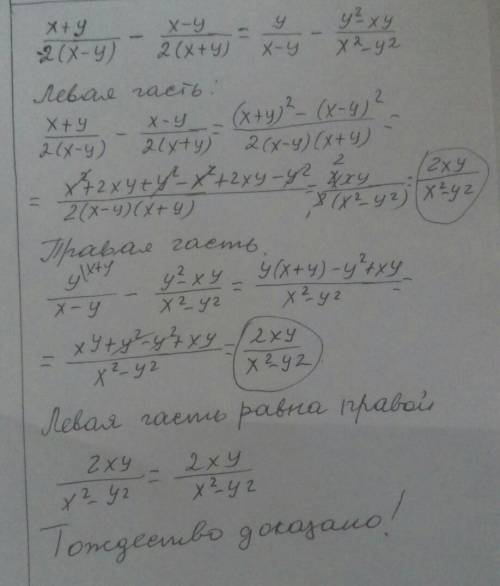 x+y/2(x-y) - x-y/2(x+y) = y/x-y - y²-xy/x²-y²
Левая часть:
x+y/2(x-y) - x-y/2(x+y) = (x+y)²-(x-y)²/2(x-y)(x+y) =
= x²+2xy+y²-x²+2xy-y²/2(x-y)(x+y) = 4xy/2(x²-y²) = 2xy/x²-y²
Правая часть.
y\x+y/x-y - y²-xy/x²-y² = y(x+y)-y²+xy/x²-y² =
= xy+y²-y²+xy/x²-y² = 2xy/x²-y²
Левая часть равна правой
2xy/x²-y² = 2xy/x²-y²
Тождество доказано!